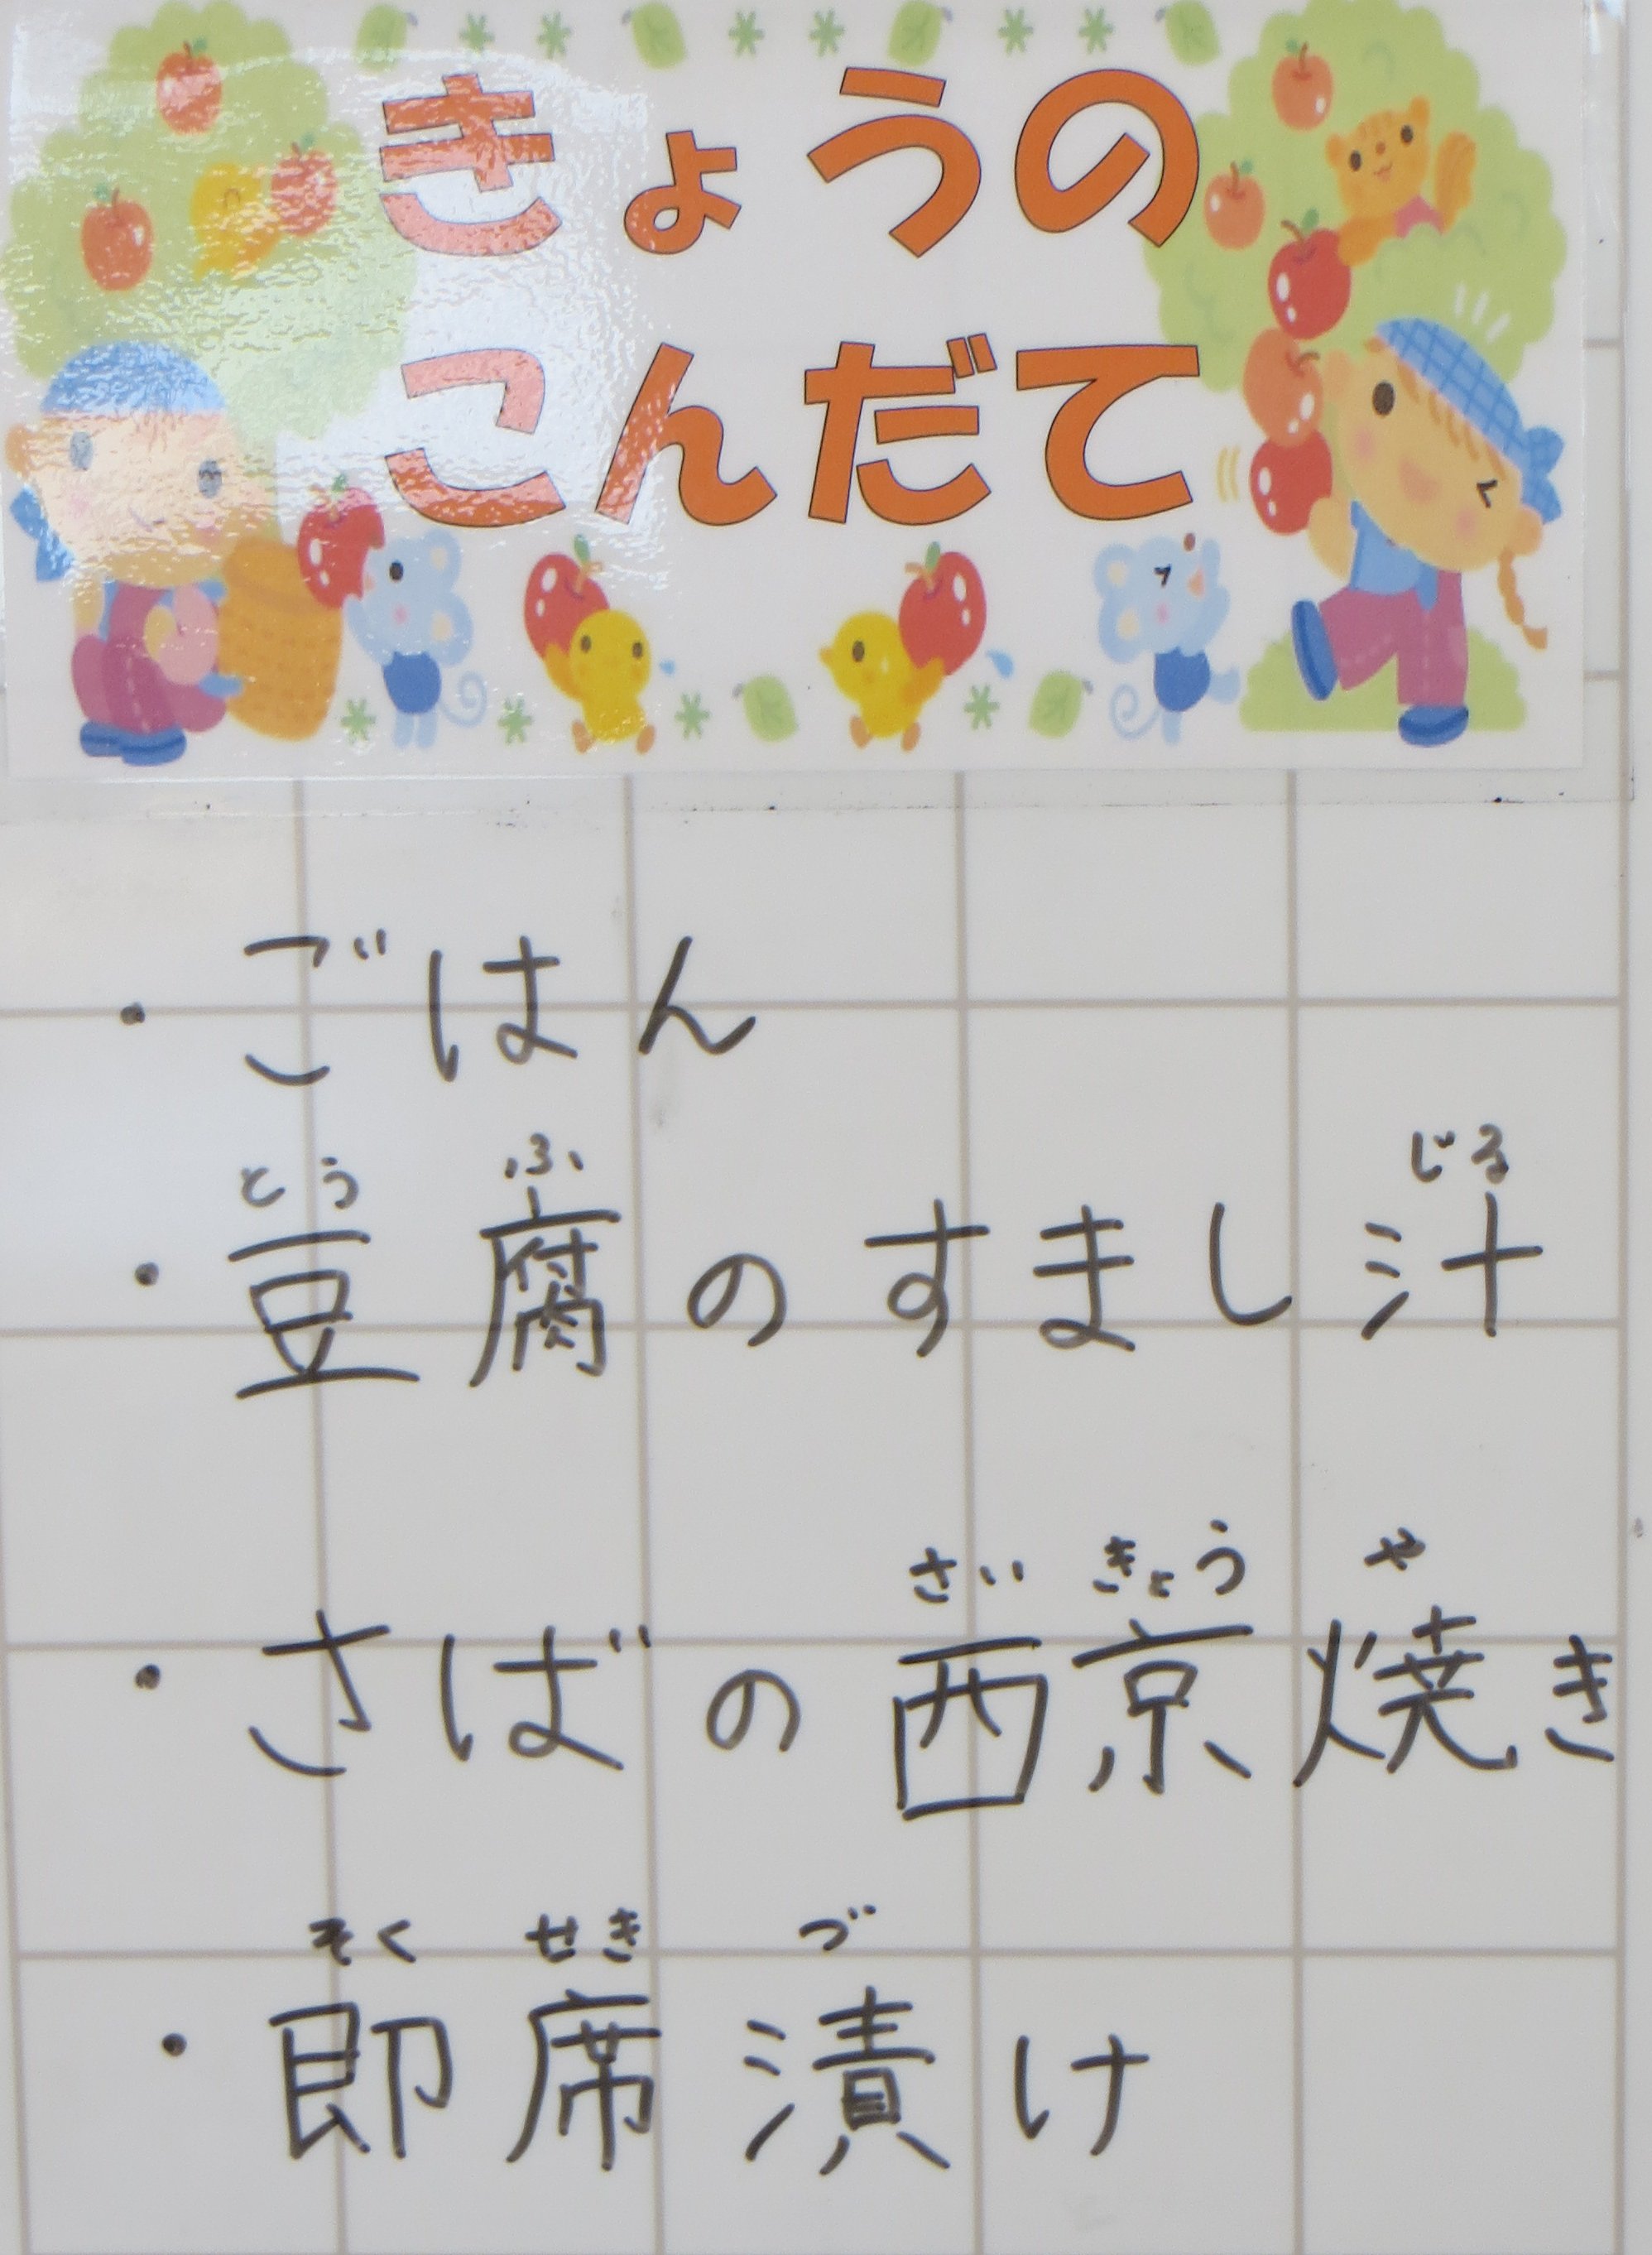 きょうの
こんだて
・ごはん
とう ふ じる
・豆腐のすまし汁
さい きょう や
・さばの西京焼き
そく せき づ
・即席漬け